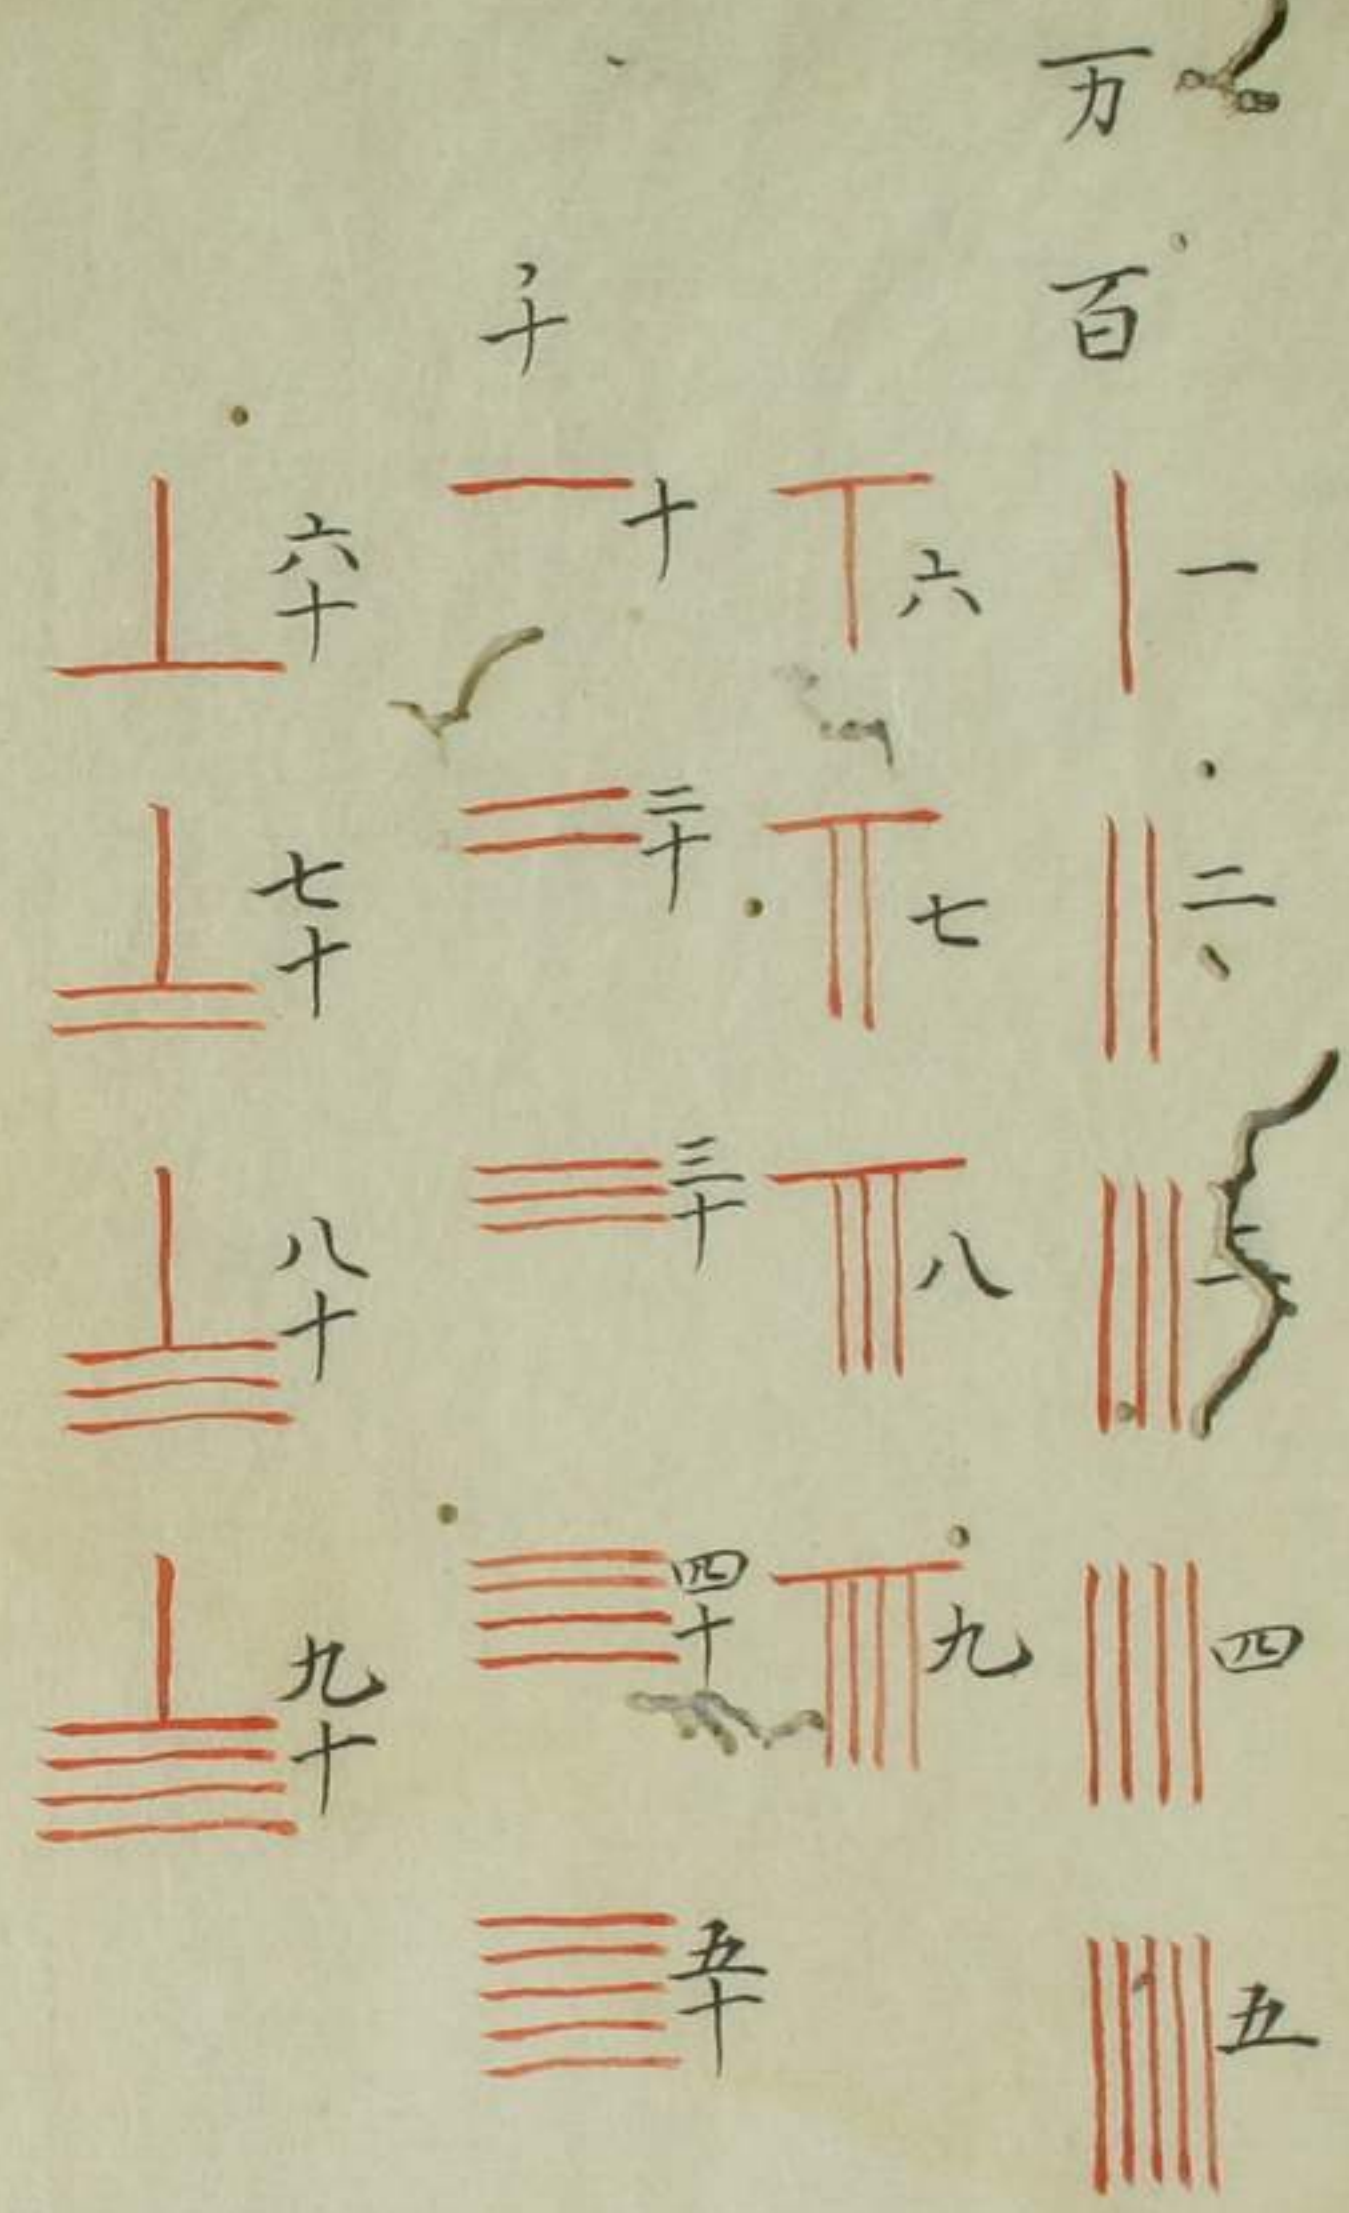 万
百
一
二
三
四
五
六
七
八
九
千
十
二十
三十
四十
五十
六十
七十
八十
九十